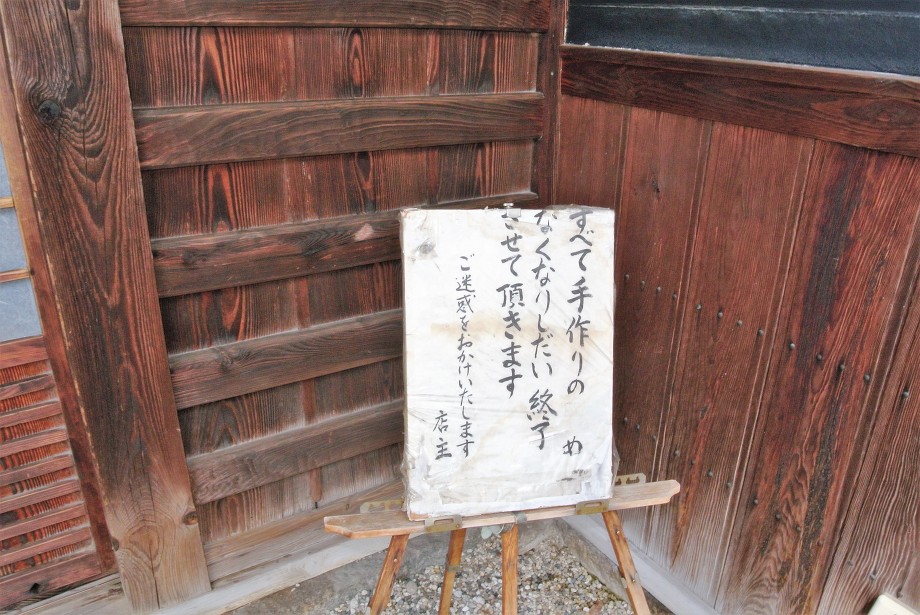 すべて手作りの　め
なくなりしだい 終了
させて頂きます
ご迷惑をおかけいたします
店主